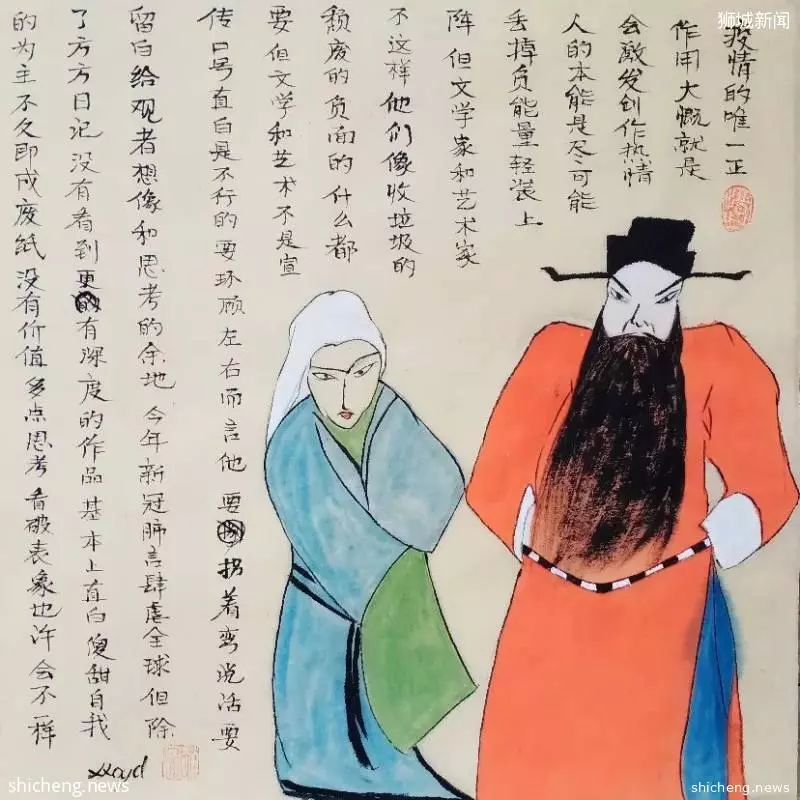 狮城新闻
疫情的唯一正
作用大概就是
会激发创作热情
人的本能是尽可能
丢掉负能量轻装上
阵 但文学家和艺术家
不这样 他们像收垃圾的
颓废的负面的什么都
要 但文学和艺术不是宣
传口号直白是不行的 要环顾左右而言他 要拐着弯说话 要
留白给观者想像和思考的余地 今年新冠肺炎肆虐全球 但除
了方方日记 没有看到更有深度的作品 基本上直白傻甜自我
的为主 不久即成废纸 没有价值 多点思考 看破表象也许会不一样
shicheng.news
shicheng.news